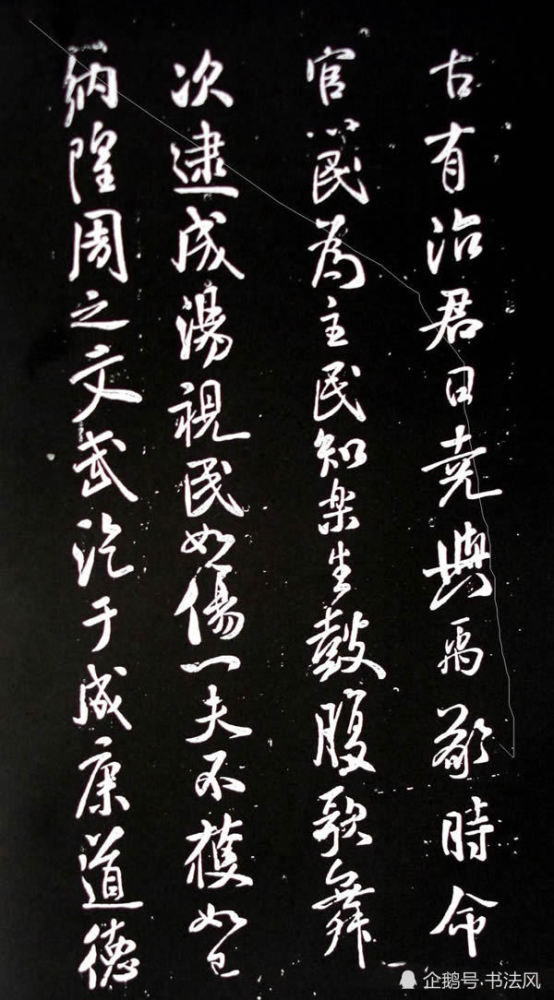 古有治君曰堯與禹敬時命
官以民為主民知樂生鼓腹歌舞
次逮成湯視民如傷一夫不獲如己
納隍周之文武訖于成康道德
企鹅号·书法风